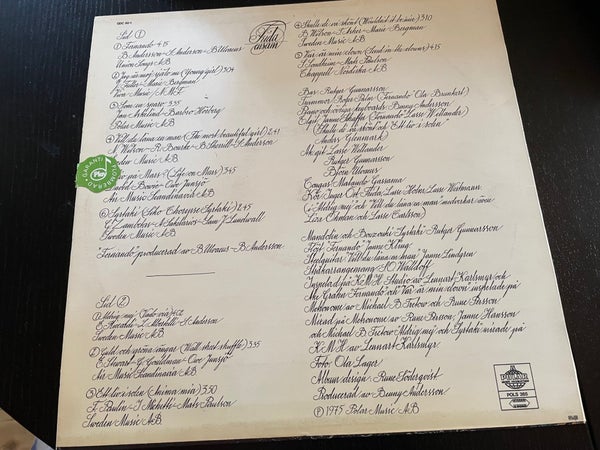 Frida
ensam
Sid 1
① Fernando 4.15
B Andersson-S Anderson-B Ulvaeus
Union Songs AB
② Jag är mej själv nu (Young girl) 3.04
J Fuller-Marie Bergman
Eon Music / N.M.P.
③ Som en sparv 3.55
Jan Askelind-Barbro Hörberg
Polar Music AB
④ Vill du låna en man (The most beautiful girl) 2.41
N Wilson-R Bourke-B Sherrill-S Anderson
Music AB
⑤ Liv på Mars (Life on Mars) 3.45
David Bowie-Owe Junsjö
Air Music Scandinavia AB
⑥ Syrtaki (Siko Chorepse Syrtaki) 2.45
G Zambetas-A Sakelarios-Sam J Lundwall
Sweden Music AB
"Fernando" producerad av B Ulvaeus-B Andersson
Sid 2
① Aldrig mej
Sweden Music AB
② Guld och gröna ängar (Wall street shuffle) 3.35
E Stewart-G Gouldman-Owe Junsjö
Air Music Scandinavia AB
③ Ett liv i solen (Anima mia) 3.50
F Paulin-I Michetti-Mats Paulson
Sweden Music AB
④ Skulle de va skönt (Wouldn't it be nice) 3.10
B Wilson-T Asher-Marie Bergman
Sweden Music AB
⑤ Var är min clown (Send in the clowns) 4.15
S Sondheim-Mats Paulson
Chappell Nordiska AB
Bas: Rutger Gunnarsson
Trummor: Roger Palm ("Fernando" Ola Brunkert)
Piano och övriga keyboards: Benny Andersson
Elgit: Janne Schaffer ("Fernando" Lasse Wellander)
("Skulle de va skönt" och "Ett liv i solen"
Anders Glenmark)
Ak.git: Lasse Wellander
Rutger Gunnarsson
Björn Ulvaeus
Congas: Malando Gassama
Kör: Inger Och Frida, Lasse Holm, Lasse Westmann
(i "Aldrig mej" och "Vill du låna en man" medverkar även
Liza Öhman och Lasse Carlsson)
Mandolin och Bouzouki "Syrtaki": Rutger Gunnarsson
Flöjt "Fernando": Janne Kling
Steelguitar "Vill du låna en man": Janne Lindgren
Stråkarrangemang: SO Walldoff
Inspelad på K.M.H. Studio av Lennart Karlsmyr och
Åke Grahn. "Fernando" och "Var är min clown" inspelade på
Metronome av Michael B Tretow och Rune Persson
Mixad på Metronome av Rune Persson, Janne Hansson
och Michael B Tretow. "Aldrig mej" och "Syrtaki" mixade på
K.M.H. av Lennart Karlsmyr
Foto: Ola Lager
Album design: Rune Söderqvist
Producerad av Benny Andersson
Ⓟ 1975 Polar Music AB
GARANTI
POLAR
POLS 265